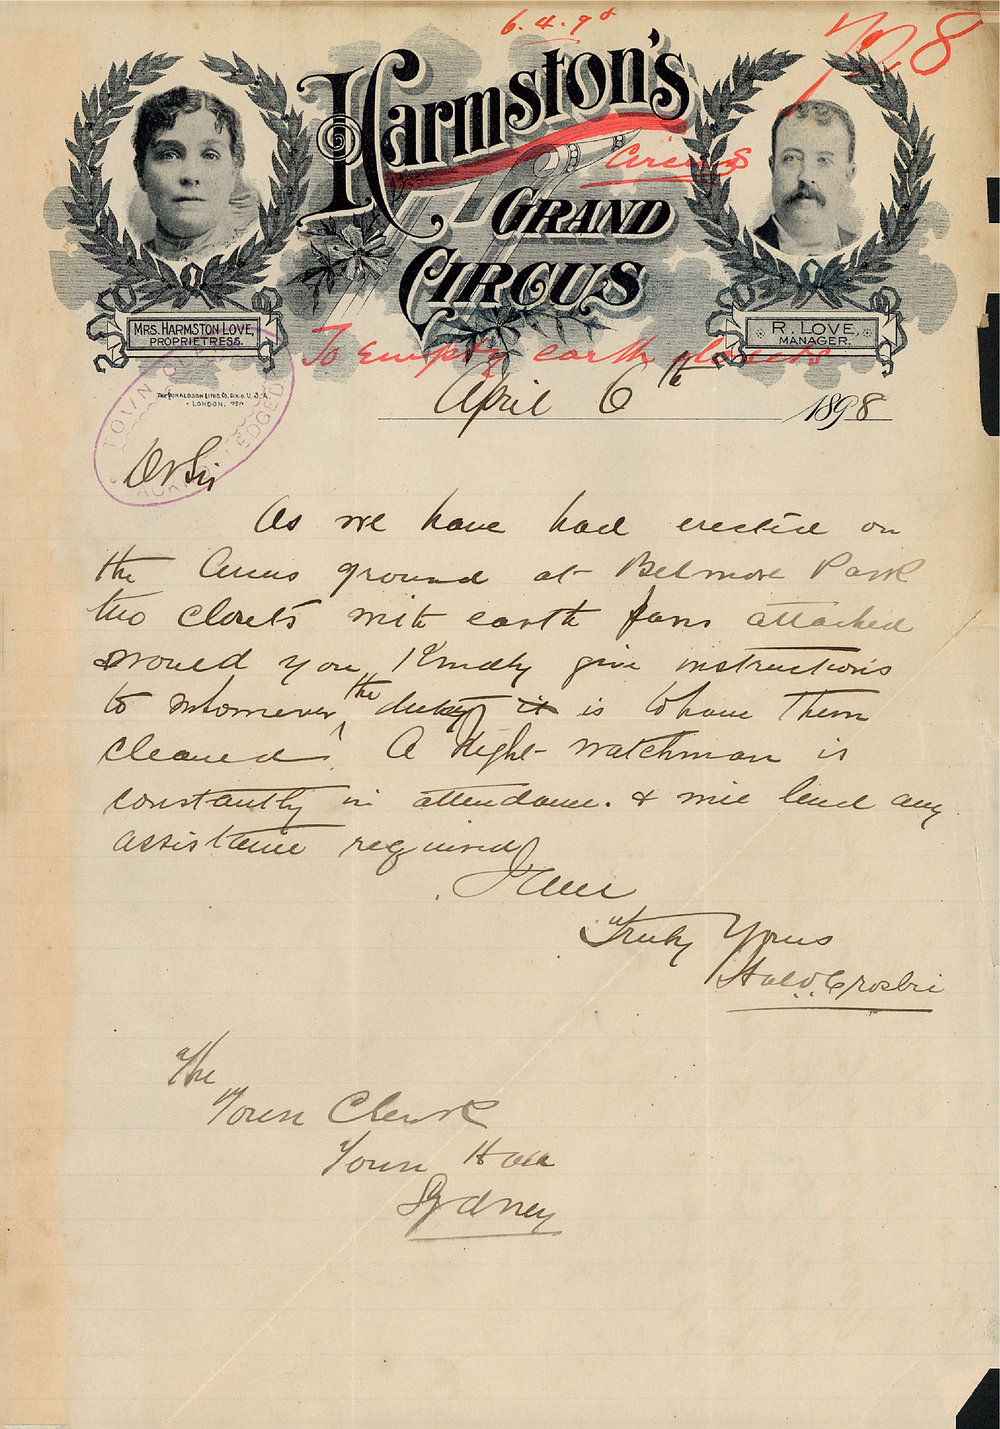 6.4.98
728
HARMSTON'S
Circus
GRAND
CIRCUS
MRS. HARMSTON LOVE,
PROPRIETRESS.
R. LOVE,
MANAGER.
To Empty earth closets
THE DONALDSON LITHO. CO. CIN. O. U.S.A.
LONDON,
TOWN
ACKNOWLEDGED
April 6th 1898
Dr Sir
As we have had erected on
the Circus ground at Belmore Park
two closets with earth pans attached
would you kindly give instructions
to whomever the duty it is to have them
cleaned. A Night watchman is
constantly in attendance. & will lend any
assistance required
I am
Truly Yours
Crosbie
The
Town Clerk
Town Hall
Sydney